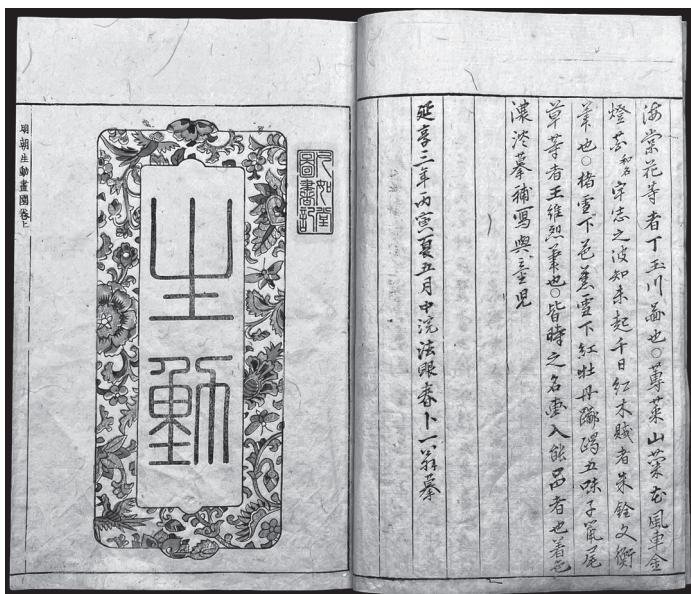 海棠花等者丁玉川畵也○蓴菜山 花風車金
燈花和名宇志之波知末起千日紅木賊者朱銓文衡
筆也○楮雪下芭蕉雪下紅牡丹躑躅五味子鼠尾
草等者王維烈筆也○皆時之名画入能品者也着色
濃淡摹補寫與童児
延享三年丙寅夏五月中浣法眼春卜一翁摹
如堂
圖書記
生動
明朝生動畫園卷上